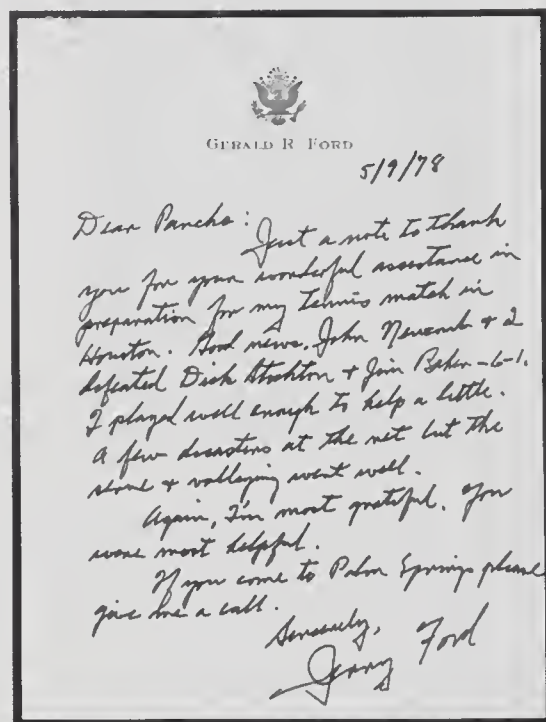 GERALD R. FORD
5/9/78
Dear Pancho:
Just a note to thank
you for your wonderful assistance in
preparation for my tennis match in
Houston. Good news. John Newcomb + I
defeated Dick Stockton + Jim Baker - 6-1.
I played well enough to help a little.
A few disasters at the net but the
serve + volleying went well.
Again, I'm most grateful. You
were most helpful.
If you come to Palm Springs please
give me a call.
Sincerely,
Jerry Ford